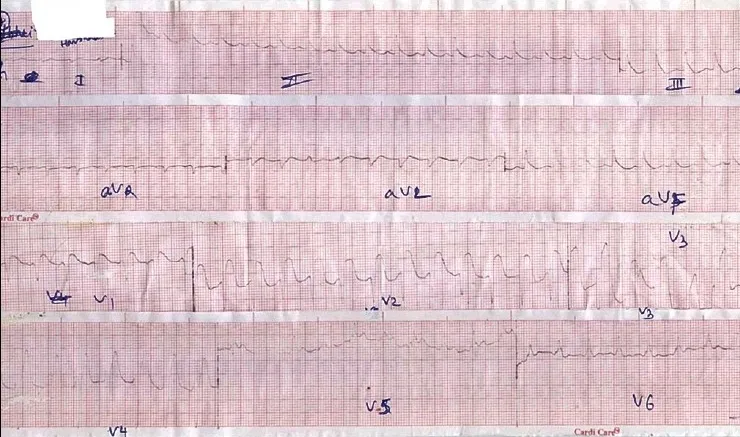 I II III
aVR aVL aVF
Cardi Care®
V3
V1 V2 V3
V4 V5 V6
Cardi Care®